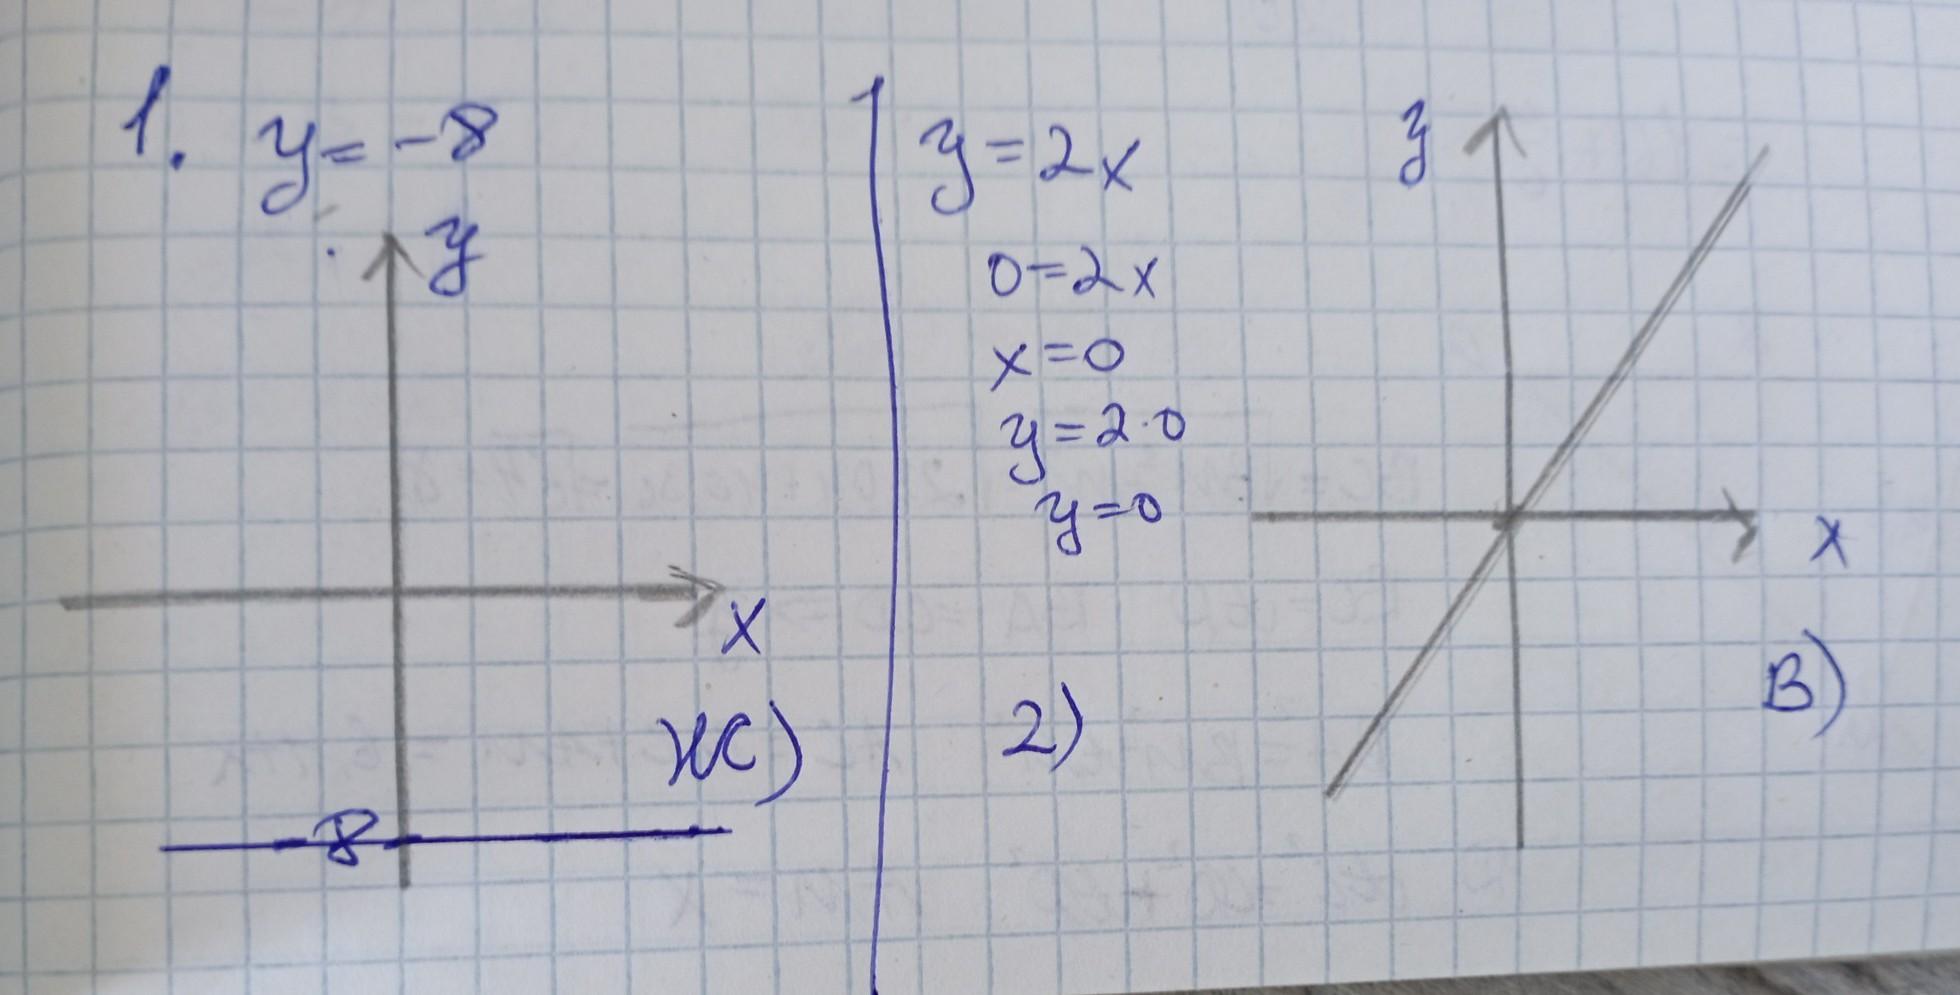 1. y = -8
y
x
ж)
-8
y = 2x
0 = 2x
x = 0
y = 2·0
y = 0
2)
y
x
В)